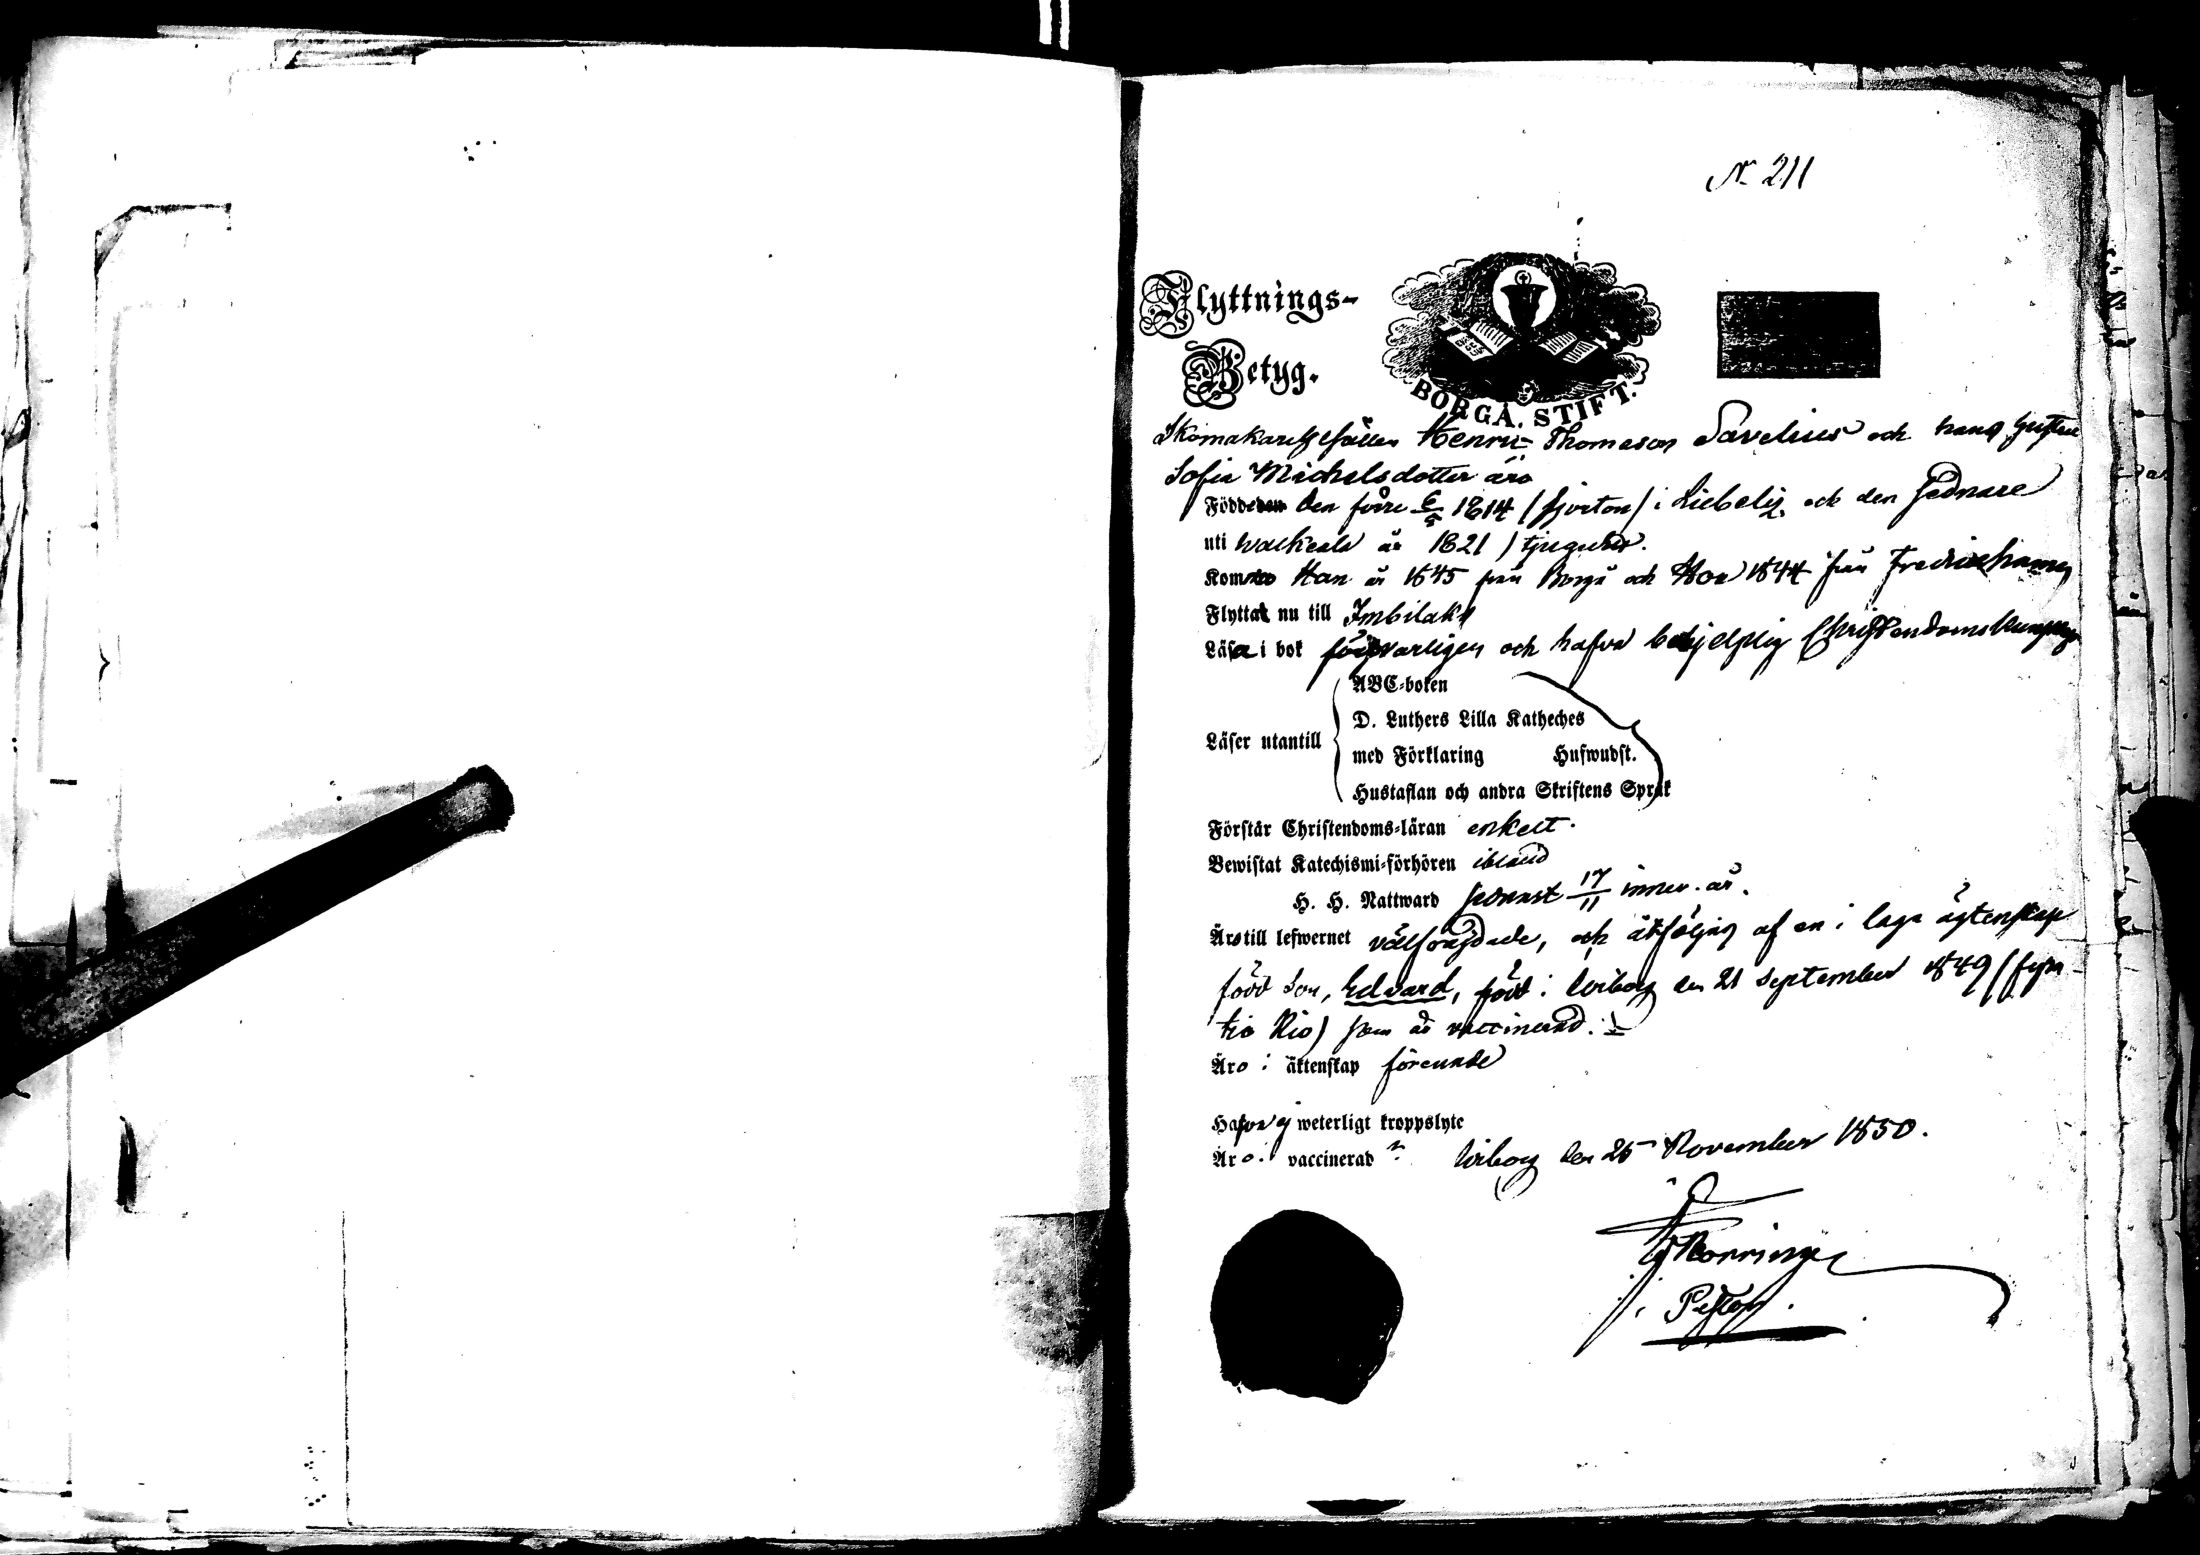 N. 211
Flyttnings-
Betyg.
BORGÅ. STIFT.
Skomakaregesällen Henric Thomason Savelius och hans hustru
Sofia Michelsdotter äro
Födde den förre 6/5 1814 (fjorton) i Liebeliz och den sednare
uti Walkeala år 1821 (tjuguett).
Komne Han år 1845 från Borgå och Hon 1844 från Fredrichamn
Flytta nu till Imbilaks
Läsa i bok försvarligen och hafva behjelplig Christendomskunskap
ABC-boken
D. Luthers Lilla Katheches
Läser utantill
med Förklaring Hufwudst.
Hustaflan och andra Skriftens Språk
Förstår Christendoms-läran enkelt.
Bewistat Katechismi-förhören ibland
H. H. Nattward sednast 17/11 innev. år.
Äro till lefwernet välfrägdade, och åtföljas af en i laga ägtenskap
född Son, Edvard, född i Wiborg den 21 September 1849 (fyra
tio Nio) som är vaccinerad.
Äro i äktenskap förenade
Hafva ej weterligt kroppslyte
Äro vaccinerad Wiborg den 25 November 1850.
Pastor.